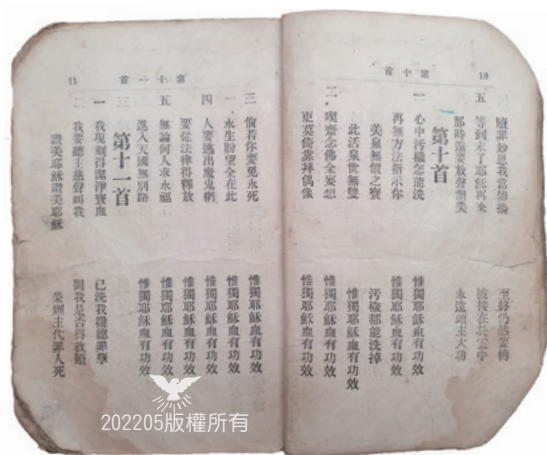 第十首 10
贖罪妙恩我當傳揚 至終仍然要傳
五 等到末了耶穌再來 被接在於雲中
那時還要放聲讚美 永遠頌主大功
第十首
一 心中污穢怎能洗 惟獨耶穌血有功效
再無方法指示你 惟獨耶穌血有功效
美泉無價之寶 污穢都能洗掉
此活泉世無雙 惟獨耶穌血有功效
二 喫齋念佛全妄想 惟獨耶穌血有功效
更莫倚靠拜偶像 惟獨耶穌血有功效
第十一首 11
三 倘若你要免永死 惟獨耶穌血有功效
永生盼望全在此 惟獨耶穌血有功效
四 人要逃出魔鬼網 惟獨耶穌血有功效
要從法律得釋放 惟獨耶穌血有功效
五 無論何人求永福 惟獨耶穌血有功效
進入天國無別路 惟獨耶穌血有功效
第十一首
一 我現刻得潔淨寶血 已洗我諸般罪孽
二 我要聽主慈聲叫我 問我是否得救贖
讚美耶穌讚美耶穌 榮耀主代罪人死
202205版權所有